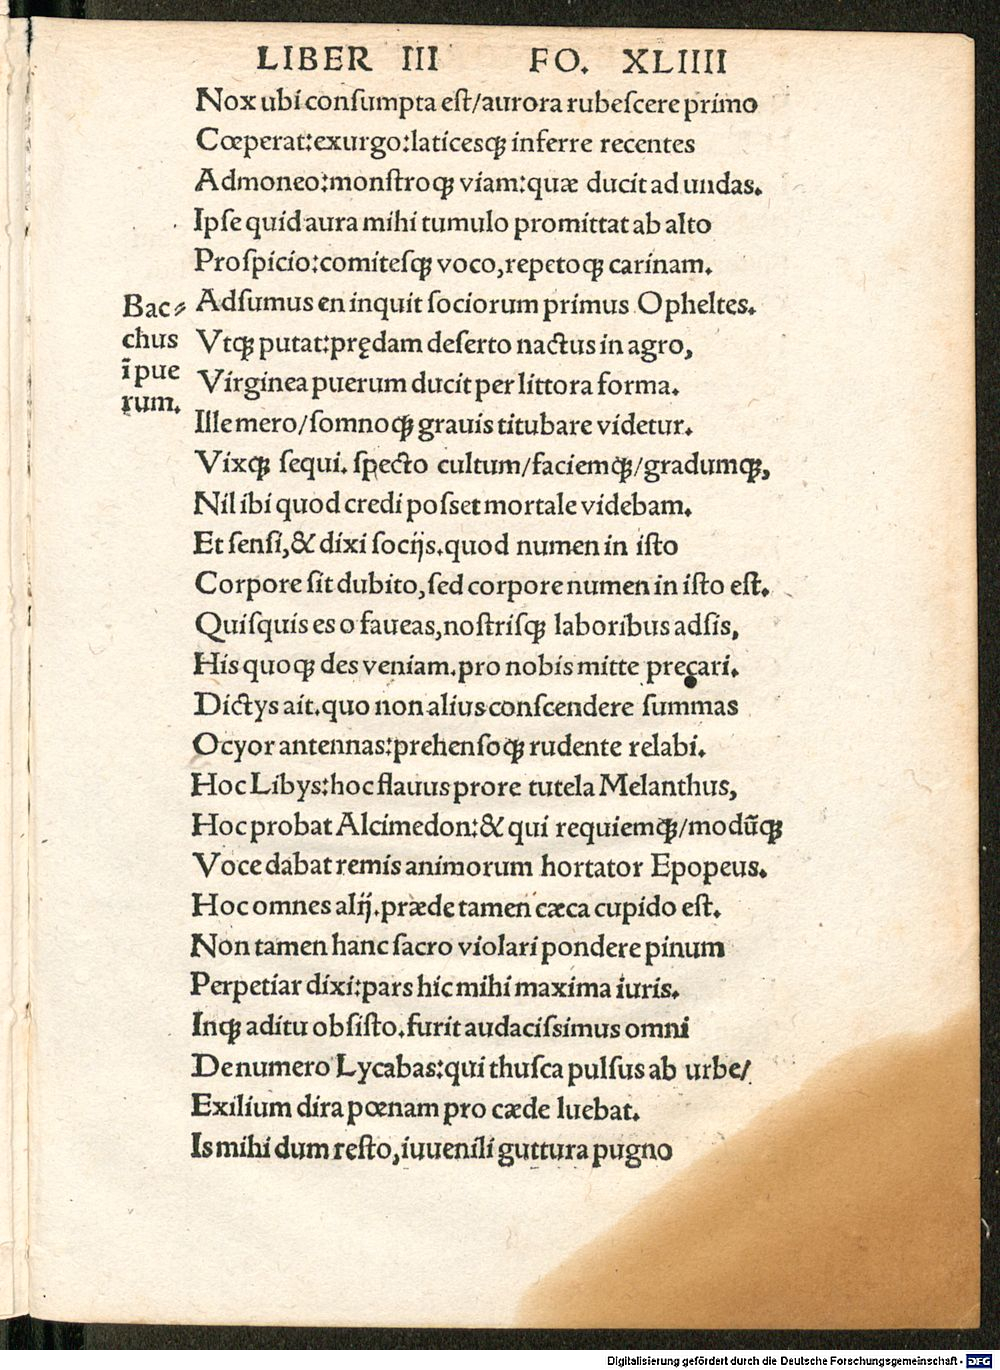 LIBER III FO. XLIIII
Nox ubi conſumpta eſt/aurora rubeſcere primo
Cœperat:exurgo:laticesqꝫ inferre recentes
Admoneo:monſtroqꝫ viam:quæ ducit ad undas.
Ipſe quid aura mihi tumulo promittat ab alto
Proſpicio:comiteſqꝫ voco,repetoqꝫ carinam.
Adſumus en inquit ſociorum primus Opheltes.
Vtqꝫ putat:prędam deſerto nactus in agro,
Virginea puerum ducit per littora forma.
Ille mero/ſomnoqꝫ grauis titubare videtur.
Vixqꝫ ſequi. ſpecto cultum/faciemqꝫ/gradumqꝫ,
Nil ibi quod credi poſset mortale videbam.
Et ſenſi,& dixi ſocijs.quod numen in iſto
Corpore ſit dubito,ſed corpore numen in iſto eſt.
Quiſquis es o faueas,noſtriſqꝫ laboribus adſis,
His quoqꝫ des veniam.pro nobis mitte precari.
Dictys ait.quo non alius conſcendere ſummas
Ocyor antennas:prehenſoqꝫ rudente relabi.
Hoc Libys:hoc flauus prore tutela Melanthus,
Hoc probat Alcimedon:& qui requiemqꝫ/modūqꝫ
Voce dabat remis animorum hortator Epopeus.
Hoc omnes alij.præde tamen cæca cupido eſt.
Non tamen hanc ſacro violari pondere pinum
Perpetiar dixi:pars hic mihi maxima iuris.
Inqꝫ aditu obſiſto.furit audaciſsimus omni
De numero Lycabas:qui thuſca pulſus ab urbe/
Exilium dira pœnam pro cæde luebat.
Is mihi dum reſto,iuuenili guttura pugno
Bac⸗
chus
ī pue
rum.
Digitalisierung gefördert durch die Deutsche Forschungsgemeinschaft - DFG